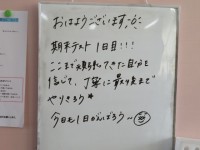 おはようございます
期末テスト1日目!!!
ここまで頑張ってきた自分を
信じて、丁寧に最後まで
やりきろう
今日も1日がんばろう〜